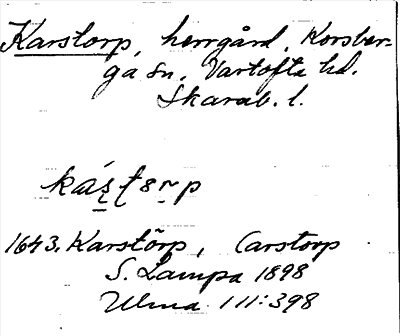 Karstorp, herrgård, Korsber-
ga sn. Vartofta hd.
Skarab. l.
1643. Karstörp, Carstorp
S. Lampa 1898
Ulma 111:398